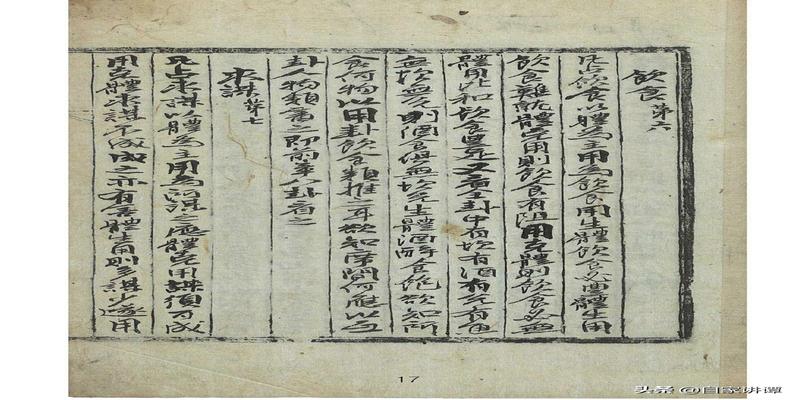 飲食 第六
凡占飲食以體為主用為飲食用生體飲食必豊體生用
飲食難就體克用則飲食有阻用克體則飲食必無
體用比和飲食豊足又看卦中有坎有酒有兌有食
無坎無兌則酒食俱無坎兌生體酒醉食飽欲知所
食何物以用卦飲食類推之耳欲知席間何應以互
卦人物類看之即前章八卦看之
求謀 第七
凡占求謀以體為主用為所謀之應體克用謀須可成
用克體求謀不成成之亦有害體生用則多謀少遂用
17
头条 @自家讲谭